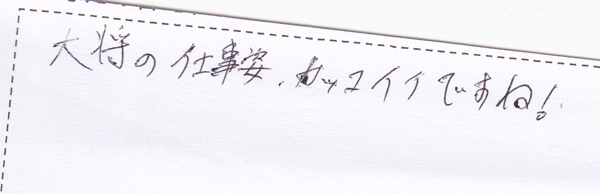 大将の仕事姿、カッコイイですね!